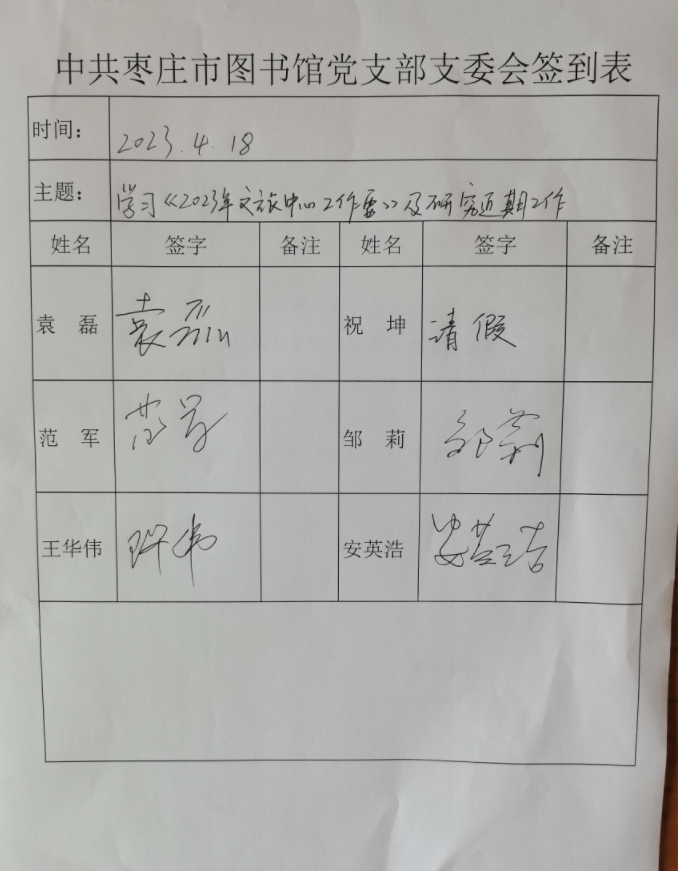 中共枣庄市图书馆党支部支委会签到表
时间： 2023.4.18
主题： 学习《2023年文旅中心工作要》及研究近期工作
姓名 签字 备注 姓名 签字 备注
袁 磊 袁磊 祝 坤 请假
范 军 范军 邹 莉 邹莉
王华伟 安英浩 安英浩